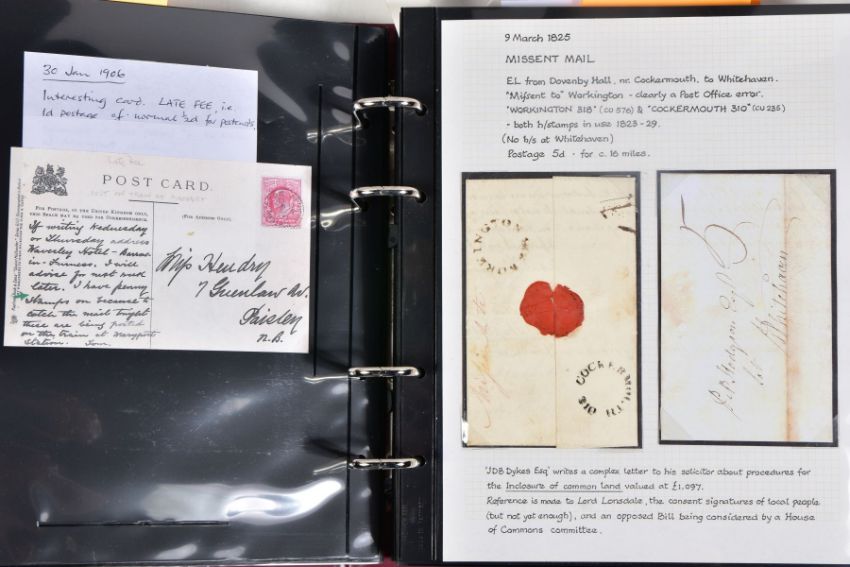 30 Jan 1906
Interesting card. LATE FEE, i.e.
1d postage of normal ½d for postcards.
Late fee
POST CARD.
FOR POSTAGE IN THE UNITED KINGDOM ONLY,
THIS SPACE MAY BE USED FOR CORRESPONDENCE.
(FOR ADDRESS ONLY.)
If writing Wednesday
or Thursday address
Waverley Hotel - Barrow-
in-Furness. I will
advise for next week
later. I have penny
stamps on because to
catch the mail tonight
these are being posted
on the train at Maryport
Station. Tom.
Miss Hendry
7 Greenlaw Av.
Paisley
N.B.
9 March 1825
MISSENT MAIL
E.L from Dovenby Hall, nr. Cockermouth, to Whitehaven.
"Missent to" Workington - clearly a Post Office error.
'WORKINGTON 318' (CU 576) & "COCKERMOUTH 310" (CU 235)
- both h/stamps in use 1823-29.
(No h/s at Whitehaven)
Postage 5d - for c. 16 miles.
WORKINGTON
Missent to
COCKERMOUTH
5
Hodgson Esqr
Whitehaven
'JDB Dykes Esq' writes a complex letter to his solicitor about procedures for
the Inclosure of common land valued at £1,097.
Reference is made to Lord Lonsdale, the consent signatures of local people
(but not yet enough), and an opposed Bill being considered by a House
of Commons committee.